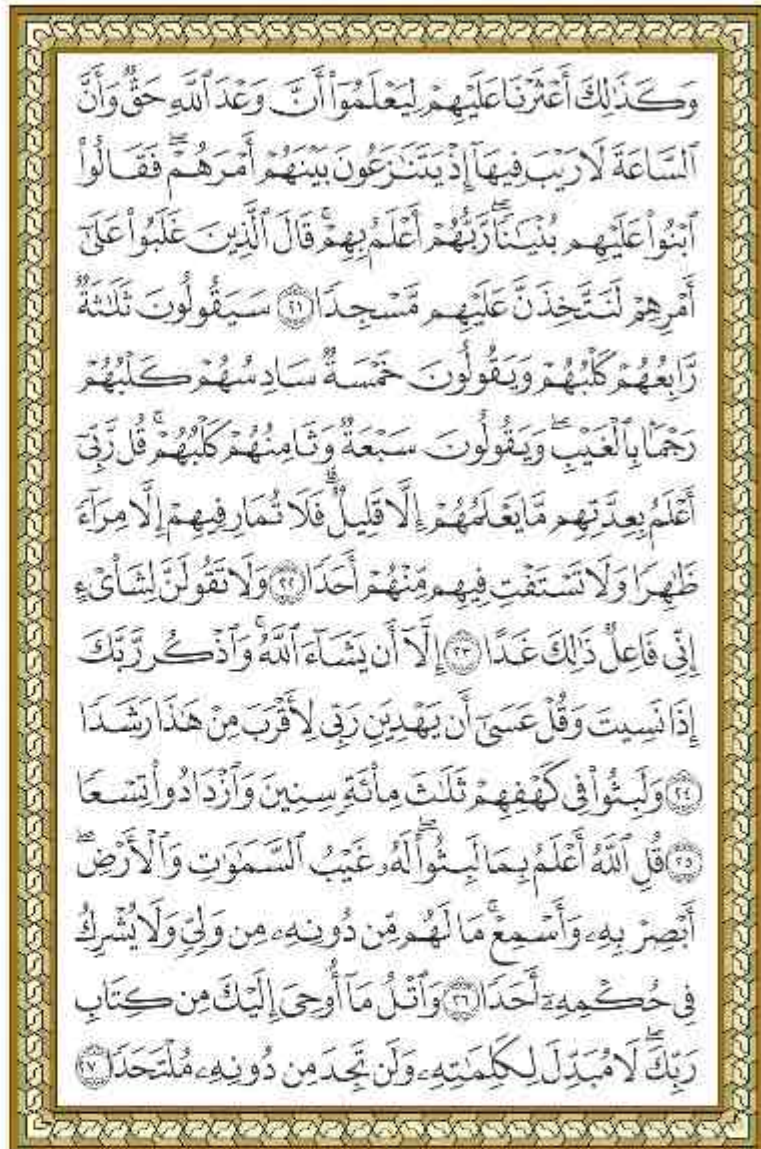 وَكَذَٰلِكَ أَعۡثَرۡنَا عَلَيۡهِمۡ لِيَعۡلَمُوٓاْ أَنَّ وَعۡدَ ٱللَّهِ حَقّٞ وَأَنَّ
ٱلسَّاعَةَ لَا رَيۡبَ فِيهَآ إِذۡ يَتَنَٰزَعُونَ بَيۡنَهُمۡ أَمۡرَهُمۡۖ فَقَالُواْ
ٱبۡنُواْ عَلَيۡهِم بُنۡيَٰنٗاۖ رَّبُّهُمۡ أَعۡلَمُ بِهِمۡۚ قَالَ ٱلَّذِينَ غَلَبُواْ عَلَىٰٓ
أَمۡرِهِمۡ لَنَتَّخِذَنَّ عَلَيۡهِم مَّسۡجِدٗا ۝٢١ سَيَقُولُونَ ثَلَٰثَةٞ
رَّابِعُهُمۡ كَلۡبُهُمۡ وَيَقُولُونَ خَمۡسَةٞ سَادِسُهُمۡ كَلۡبُهُمۡ
رَجۡمَۢا بِٱلۡغَيۡبِۖ وَيَقُولُونَ سَبۡعَةٞ وَثَامِنُهُمۡ كَلۡبُهُمۡۚ قُل رَّبِّيٓ
أَعۡلَمُ بِعِدَّتِهِم مَّا يَعۡلَمُهُمۡ إِلَّا قَلِيلٞۗ فَلَا تُمَارِ فِيهِمۡ إِلَّا مِرَآءٗ
ظَٰهِرٗا وَلَا تَسۡتَفۡتِ فِيهِم مِّنۡهُمۡ أَحَدٗا ۝٢٢ وَلَا تَقُولَنَّ لِشَاْيۡءٍ
إِنِّي فَاعِلٞ ذَٰلِكَ غَدًا ۝٢٣ إِلَّآ أَن يَشَآءَ ٱللَّهُۚ وَٱذۡكُر رَّبَّكَ
إِذَا نَسِيتَ وَقُلۡ عَسَىٰٓ أَن يَهۡدِيَنِ رَبِّي لِأَقۡرَبَ مِنۡ هَٰذَا رَشَدٗا
۝٢٤ وَلَبِثُواْ فِي كَهۡفِهِمۡ ثَلَٰثَ مِاْئَةٖ سِنِينَ وَٱزۡدَادُواْ تِسۡعٗا
۝٢٥ قُلِ ٱللَّهُ أَعۡلَمُ بِمَا لَبِثُواْۖ لَهُۥ غَيۡبُ ٱلسَّمَٰوَٰتِ وَٱلۡأَرۡضِۖ
أَبۡصِرۡ بِهِۦ وَأَسۡمِعۡۚ مَا لَهُم مِّن دُونِهِۦ مِن وَلِيّٖ وَلَا يُشۡرِكُ
فِي حُكۡمِهِۦٓ أَحَدٗا ۝٢٦ وَٱتۡلُ مَآ أُوحِيَ إِلَيۡكَ مِن كِتَابِ
رَبِّكَۖ لَا مُبَدِّلَ لِكَلِمَٰتِهِۦ وَلَن تَجِدَ مِن دُونِهِۦ مُلۡتَحَدٗا ۝٢٧